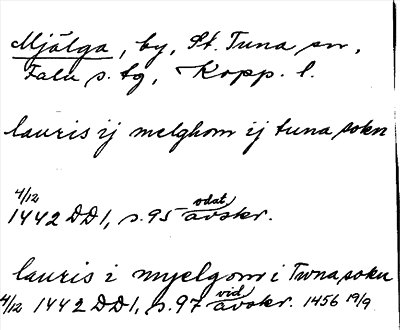 Mjälga, by, St. Tuna sn,
Falu s. tg, Kopp. l.
lauris ij melghom ij tuna sokn
4/12 1442 DD1, s. 95 odat. avskr.
lauris i myelgom i Twna soku
4/12 1442 DD1, s. 97 vid. avskr. 1456 19/9